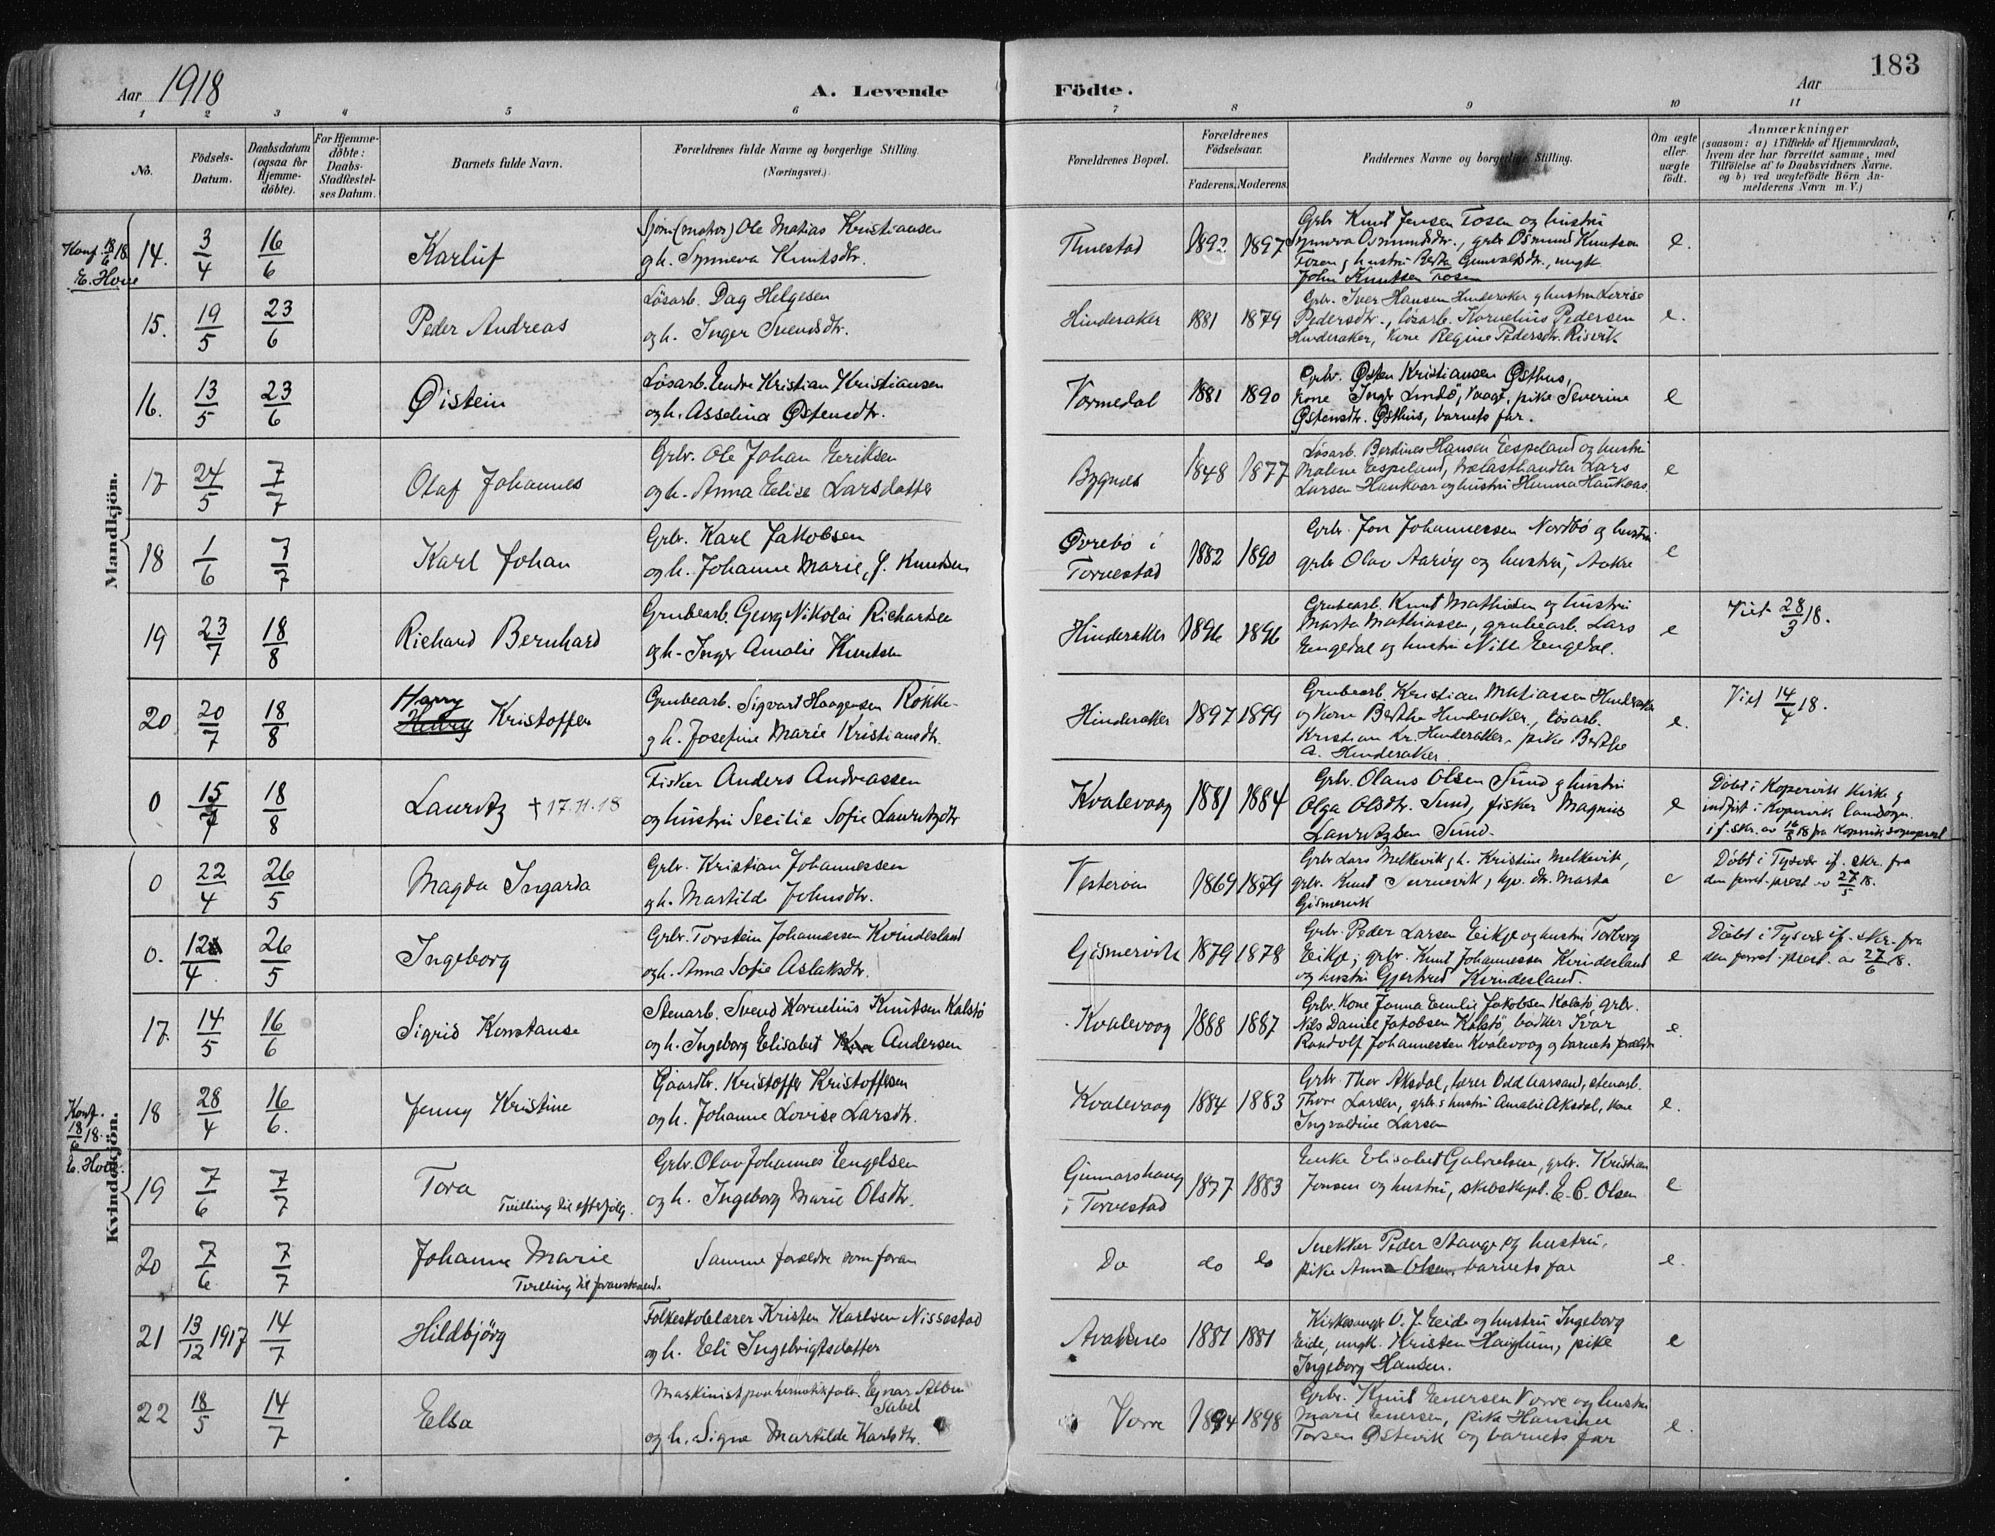 Aar 1918
A. Levende Födte.
Aar
183
1 2 3 4 5 6 7 8 9 10 11
No.
Födsels-Datum.
Daabsdatum (ogsaa for Hjemme-döbte).
For Hjemme-döbte: Daabs-Stadfæstel-ses Datum.
Barnets fulde Navn.
Forældrenes fulde Navne og borgerlige Stilling.
(Næringsvei.)
Forældrenes Bopæl.
Forældrenes Födselsaar.
Faderens. Moderens.
Faddernes Navne og borgerlige Stilling.
Om ægte eller uægte födt.
Anmærkninger
(saasom: a) i Tilfælde af Hjemmedaab, hvem der har forrettet samme, med Tilföielse af to Daabsvidners Navne. og b) ved uægtefödte Börn An-melderens Navn m. V.)
Mandkjön.
Konf. 18/6 18.
E. Hove
14. 3/4 16/6 Karluf
Sjöm (mator) Ole Matias Kristiansen
og h. Synneva Knutsdtr.
Tuestad 1892 1897
Grbr Knut Jensen Tosen og hustru
Synneva Osmundsdtr., grbr Osmund Knutsen
Tosen, hustru Berta Gunvaldsdtr., ungk
John Knutsen Tosen
e.
15. 19/5 23/6 Peder Andreas
Løsarb. Dag Helgesen
og h. Inger Svendsdtr.
Hinderaker 1881 1879
Grbr. Iver Hansen Hinderaker og hustru Lovise
Pedersdtr., løsarb. Kornelius Pedersen
Hinderaker, kone Regine Pedersdtr. Risvik
e.
16. 13/5 23/6 Øistein
Løsarb. Endre Kristian Kristiansen
og h. Asselina Østensdtr.
Vormedal 1881 1890
Grbr. Østen Kristiansen Østhus,
kone Inger Lindö, Vaage, pike Severine
Østensdtr. Østhus, barnets far.
e
17 24/5 7/7 Olaf Johannes
Grbr. Ole Johan Eriksen
og h. Anna Elise Larsdatter
Bygnes 1848 1877
Løsarb. Berdines Hansen Espeland og hustru
Malene Espeland, trælasthandler Lars
Larsen Haukaas og hustru Hanna Haukaas
e
18 1/6 7/7 Karl Johan
Grbr. Karl Jakobsen
og h. Johanne Marie, J. Knutsen
Øvrebö i
Torvestad 1882 1890
Grbr. Jon Johannessen Nordbö og hustru
grbr Olav Aaröy og hustru, Aakre
e
19 23/7 18/8 Richard Bernhard
Grubearb. Georg Nikolai Richardsen
og h. Inger Amalie Knutsen
Hinderaker 1896 1896
Grubearb. Knut Mathiesen og hustru
Marta Mathiassen, grubearb. Lars
Engedal og hustru Nille Engedal.
e
Viet 28/3 18.
20 20/7 18/8 Harry Kristoffer
Grubearb. Sigvart Haagensen Røkke
og h. Josefine Marie Kristiansdtr.
Hinderaker 1897 1899
Grubearb Kristian Matiassen Hinderaker
og kone Berthe Hinderaker., løsarb.
Kristian Kr. Hinderaker, pike Berthe
A. Hinderaker.
e.
Viet 14/4 18.
0 15/7 18/8 Lauritz † 17.11.18
Fisker Anders Andreassen
og hustru Secilie Sofie Lauritzdtr
Kvalevaag 1881 1884
Grbr. Olaus Olsen Sund og hustru
Olga Olsdtr. Sund, fisker Magnus
Lauritzsen Sund.
e
Döbt i Kopervik kirke og
indført i Kopervik landsogn
i f. skr. av 16/8 18 fra Kopervik sogneprest
Kvindekjön.
0 22/4 26/5 Magda Ingarda
Grbr. Kristian Johannesen
og h. Martilde Johnsdtr.
Vesteröen 1869 1879
Grbr Lars Melkevik, h. Kristine Melkevik,
grbr. Knut Surnevik, gv. dtr. Marta
Gismervik
e
Döbt i Tysvær if. skr. fra
den forret. prest av 27/5 18.
0. 12/4 26/5 Ingeborg
Grbr. Torstein Johannessen Kvindesland
og h. Anna Sofie Aslaksdtr.
Gismervik 1879 1878
Grbr. Peder Larsen Eikje og hustru Torberg
Eikje, grbr. Knut Johannessen Kvindesland
og hustru Gjertrud Kvindesland.
e
Döbt i Tysvær if. skr. fra
den forret. prest. av 27/6 18.
17. 14/5 16/6 Sigrid Konstanse
Stenarb. Svend Kornelius Knutsen Kalstö
og h. Ingeborg Elisabet Andersen
Kvalevaag 1888 1887
Grbr. Kone Janna Emilie Jakobsen Kalstö, grbr.
Nils Daniel Jakobsen Kalstö, bødker Ivar
Randolf Johannessen Kvalevaag og barnets forældre
e.
Konf. 18/6 18.
E. Hove
18 28/4 16/6. Jenny Kristine
Gaardbr. Kristoffer Kristoffersen
og h. Johanne Lovise Larsdtr.
Kvalevaag 1884 1883
Grbr. Thor Aksdal, lærer Odd Aarsand, stenarb.
Thore Larsen, grbr.s hustru Amalie Aksdal, kone
Ingvaldine Larsen
e.
19 7/6 7/7 Tora
Tvilling til efterfølg.
Grbr. Olav Johannes Engelsen
og h. Ingeborg Marie Olsdtr.
Gunnarshaug
i Torvestad 1877 1883
Enke Elisabet Gabrielsen, grbr. Kristian
Jonsen og hustru, skibskapt. E. C. Olsen
e
20 7/6. 7/7 Johanne Marie
Tvilling til foranstaaende.
Samme forældre som foran
Do do do
Snekker Peder Stange og hustru,
pike Anna Olsen, barnets far
e.
21 13/12 1917 14/7 Hildbjørg
Folkeskolelærer Kristen Karlsen Nissestad
og h. Eli Ingebrigtsdatter
Avaldsnes 1881 1881
Kirkesanger O. J. Eide og hustru Ingeborg
Eide, ungk. Kristen Hauglum, pike
Ingeborg Hansen.
e
22 18/5 14/7 Elsa
Maskinist paa hermetikfabr. Ejnar Albin
Sabel
og h. Signe Martilde Karlsdtr.
Vorre 1894 1898
Grbr. Knut Enersen Vorre og hustru
Marie Enersen, pike Hansine
Torsen Østevik og barnets far
e.